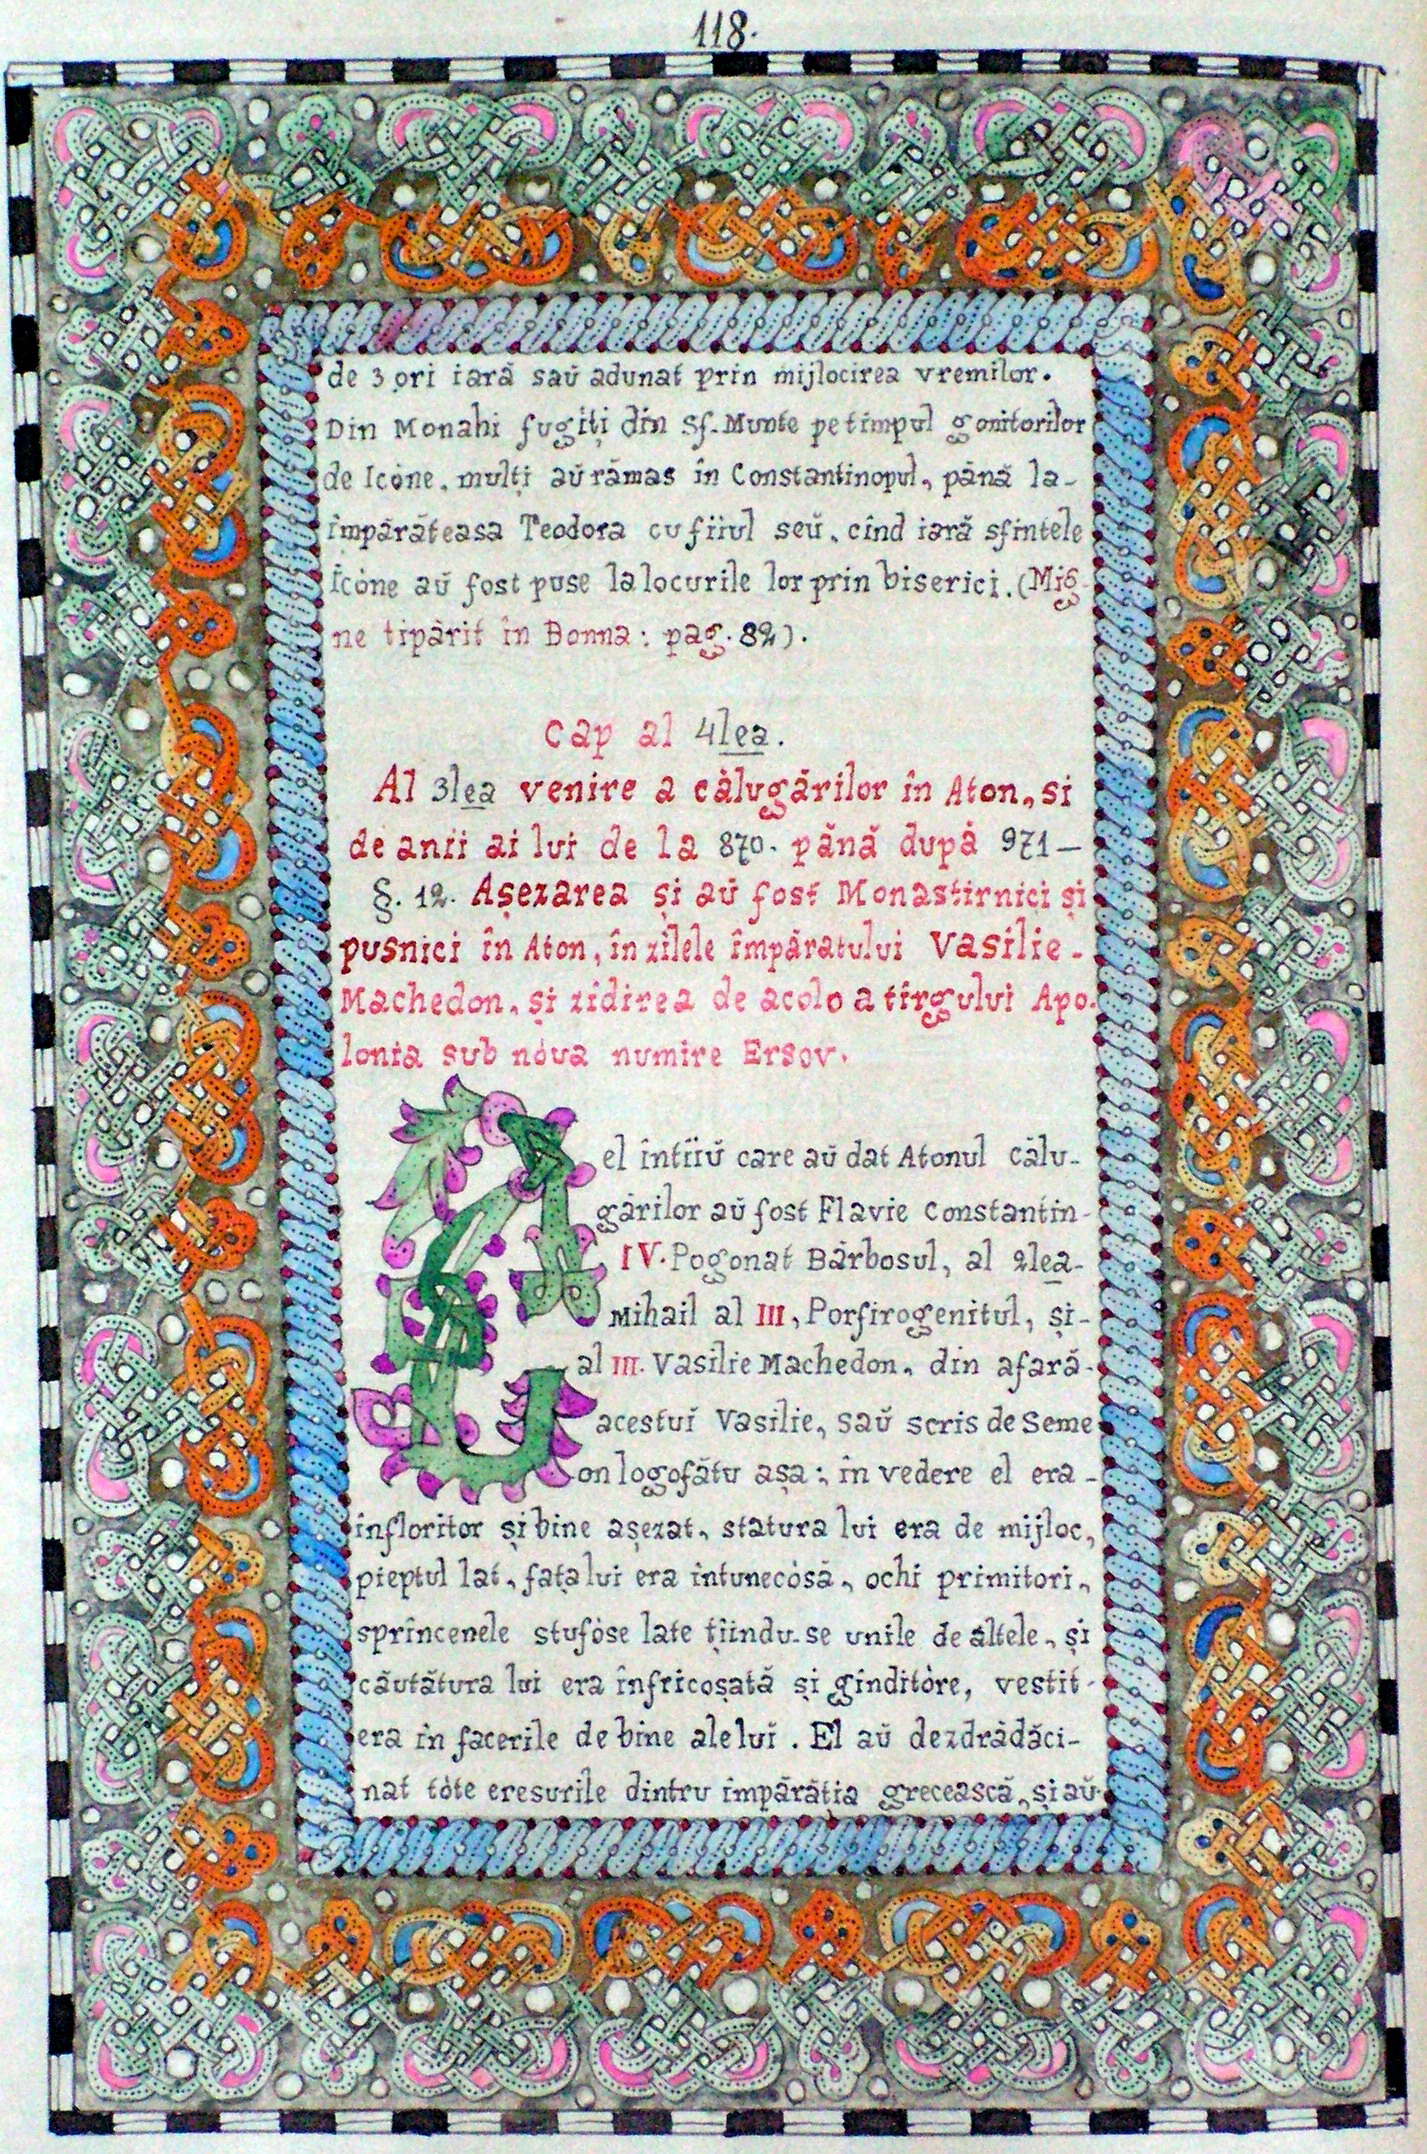 118.
de 3 ori iară saŭ adunat prin mijlocirea vremilor.
Din Monahi fugiți din Sf. Munte pe timpul gonitorilor
de Icòne, mulți aŭ rămas în Constantinopul, până la-
împărăteasa Teodora cu fiiul seŭ, cînd iară sfintele
Icòne aŭ fost puse la locurile lor prin biserici. (Mig-
ne tipărit în Bonna: pag. 82).
Cap al 4lea.
Al 3lea venire a călugărilor în Aton, si
de anii ai lui de la 870. până după 971—
§. 12. Așezarea și aŭ fost Monastirnici și
pusnici în Aton, în zilele împăratului Vasilie-
Machedon, și zidirea de acolo a tîrgului Apo-
lonia sub nòua numire Ersov.
Cel întiiŭ care aŭ dat Atonul călu-
gărilor aŭ fost Flavie Constantin-
IV. Pogonat Bărbosul, al 2lea-
Mihail al III, Porfirogenitul, și-
al III. Vasilie Machedon, din afară-
acestuĭ Vasilie, saŭ scris de Seme
on logofătu așa: în vedere el era-
înfloritor și bine așezat, statura lui era de mijloc,
pieptul lat, fața lui era întunecòsă, ochi primitori,
sprîncenele stufòse late țiindu-se unile de altele, și
căutătura lui era înfricoșată și gînditòre, vestit-
era în facerile de bine ale luĭ. El aŭ dezdrădăci-
nat tòte eresurile dintru împărăția grecească, și aŭ-